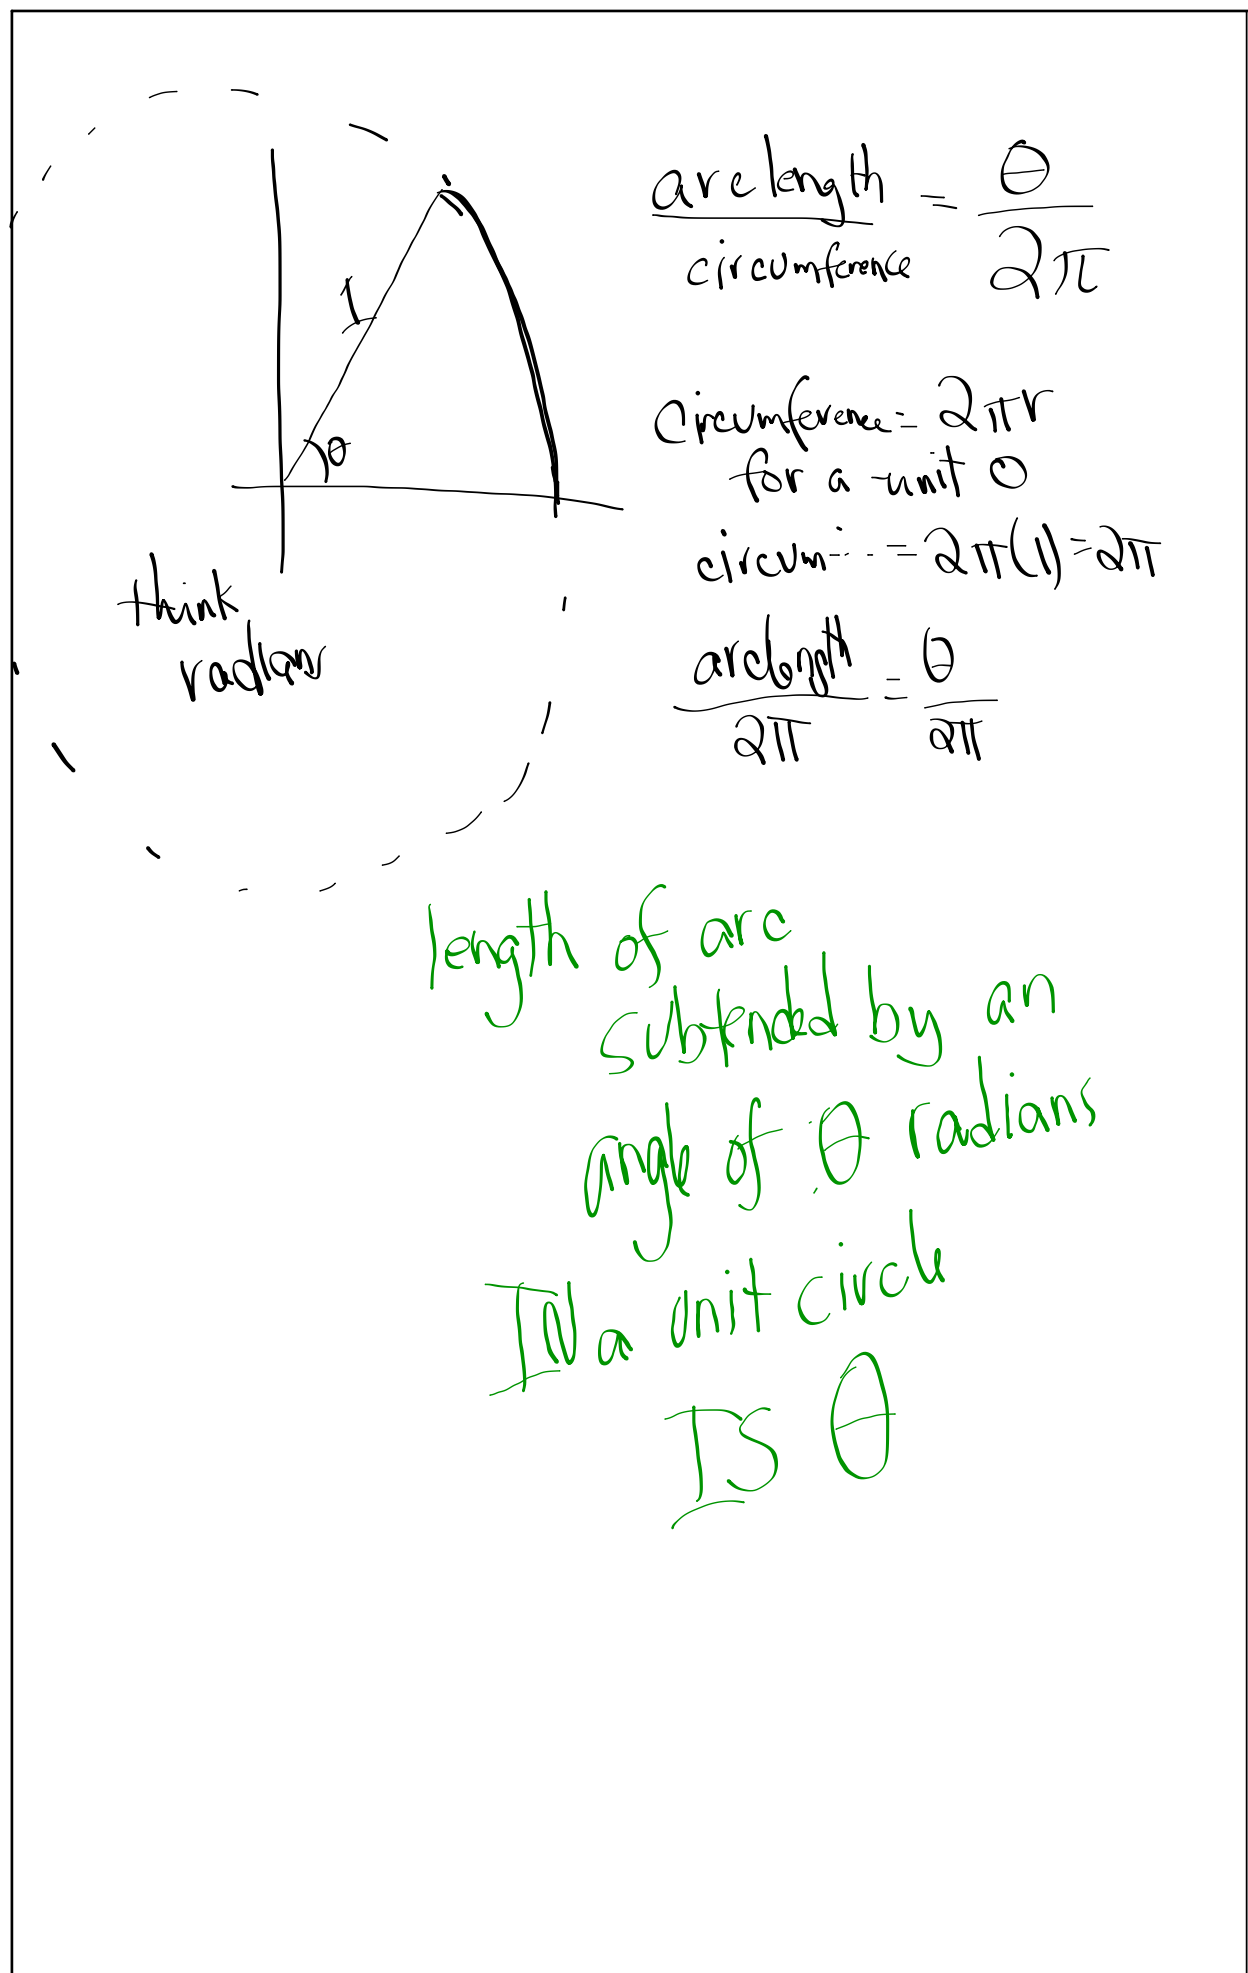 1
θ
think
radians
arc length / circumference = θ / 2π
circumference = 2πr
for a unit O
circum... = 2π(1) = 2π
arclength / 2π = θ / 2π
length of arc
subtended by an
angle of θ radians
IN a unit circle
IS θ